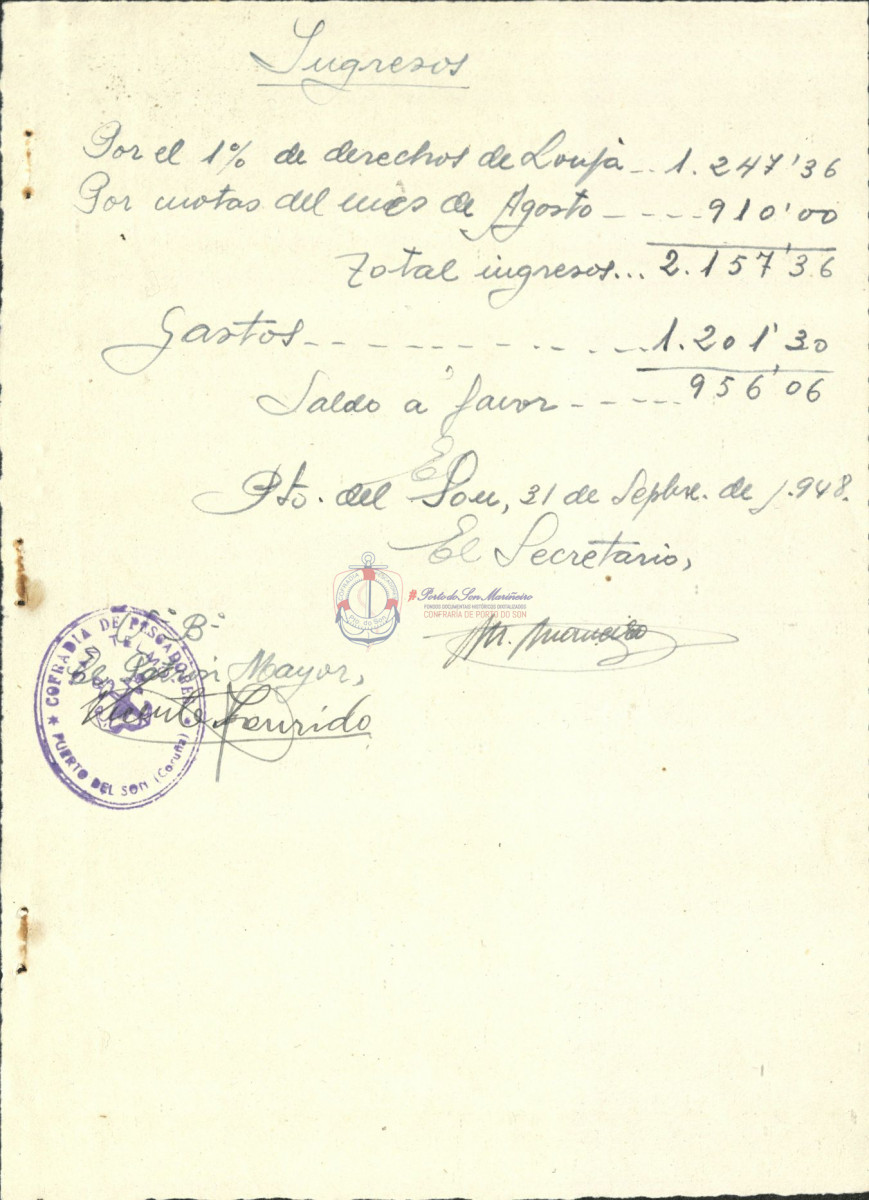 Ingresos
Por el 1% de derechos de Lonja -- 1.247'36
Por cuotas del mes de Agosto ----- 910'00
Total ingresos... 2.157'36
Gastos --------- 1.201'30
Saldo a favor ----- 956'06
El
Pto. del Son, 31 de Sepbre. de 1.948.
El Secretario,
#Porto do Son Mariñeiro
FONDOS DOCUMENTAIS HISTÓRICOS DIXITALIZADOS
CONFRARÍA DE PORTO DO SON
CONFRARÍA PESCADORES
Pto. do Son
Vº Bº
El Patrón Mayor,
Vicente Lourido
COFRADIA DE PESCADORES
SAN TELMO
PUERTO DEL SON (Coruña)